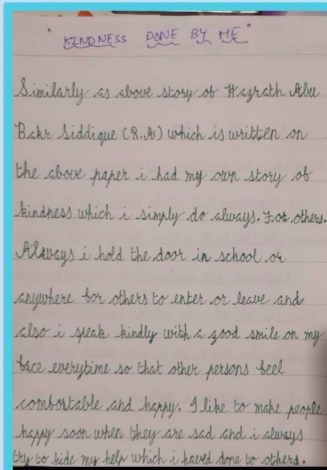 " KINDNESS DONE BY ME "
Similarly as above story of Hazrath Abu
Bakr Siddique (R.A) which is written on
the above paper i had my own story of
kindness which i simply do always. For others.
Always i hold the door in school or
anywhere for others to enter or leave and
also i speak kindly with a good smile on my
face everytime so that other persons feel
comfortable and happy. I like to make people
happy soon when they are sad and i always
try to hide my help which i haved done to others.